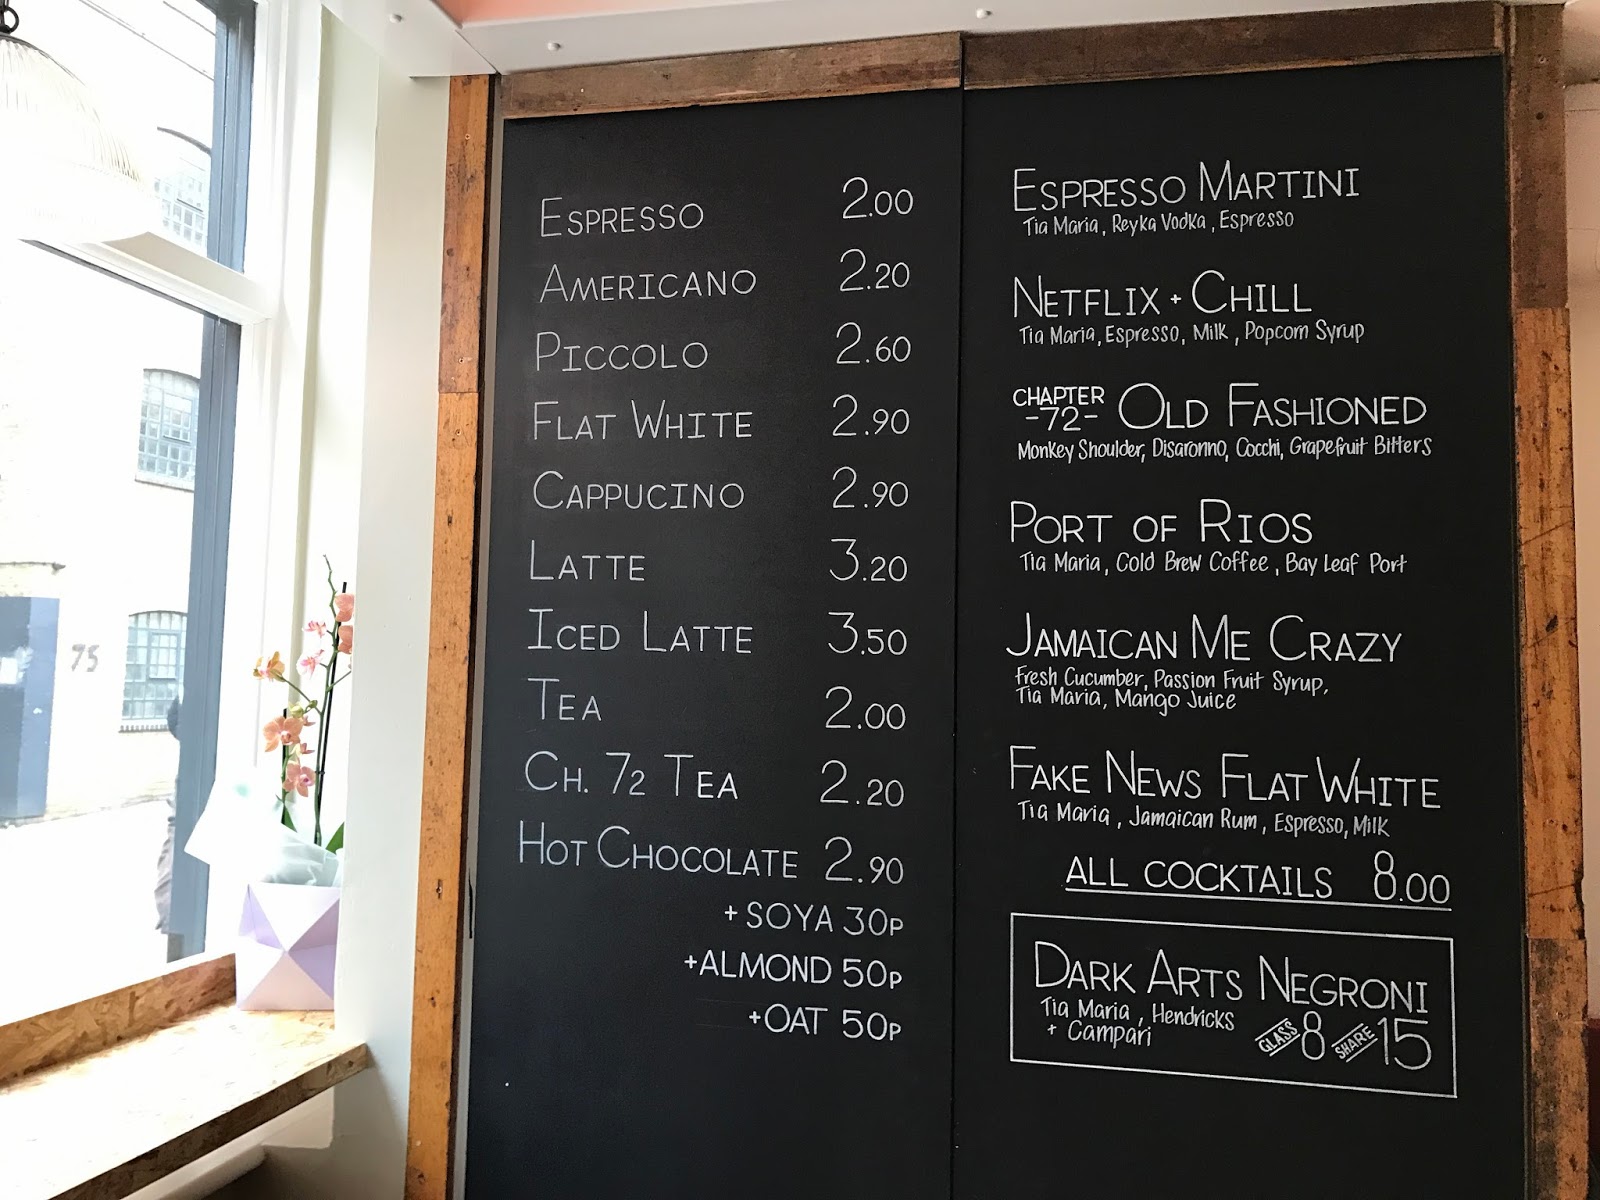 ESPRESSO 2.00
AMERICANO 2.20
PICCOLO 2.60
FLAT WHITE 2.90
CAPPUCINO 2.90
LATTE 3.20
ICED LATTE 3.50
TEA 2.00
CH. 72 TEA 2.20
HOT CHOCOLATE 2.90
+ SOYA 30P
+ALMOND 50P
+OAT 50P
ESPRESSO MARTINI
Tia Maria, Reyka Vodka, Espresso
NETFLIX + CHILL
Tia Maria, Espresso, Milk, Popcorn Syrup
CHAPTER -72- OLD FASHIONED
Monkey Shoulder, Disaronno, Cocchi, Grapefruit Bitters
PORT OF RIOS
Tia Maria, Cold Brew Coffee, Bay Leaf Port
JAMAICAN ME CRAZY
Fresh Cucumber, Passion Fruit Syrup,
Tia Maria, Mango Juice
FAKE NEWS FLAT WHITE
Tia Maria, Jamaican Rum, Espresso, Milk
ALL COCKTAILS 8.00
DARK ARTS NEGRONI
Tia Maria, Hendricks
+ Campari
GLASS 8 SHARE 15
75